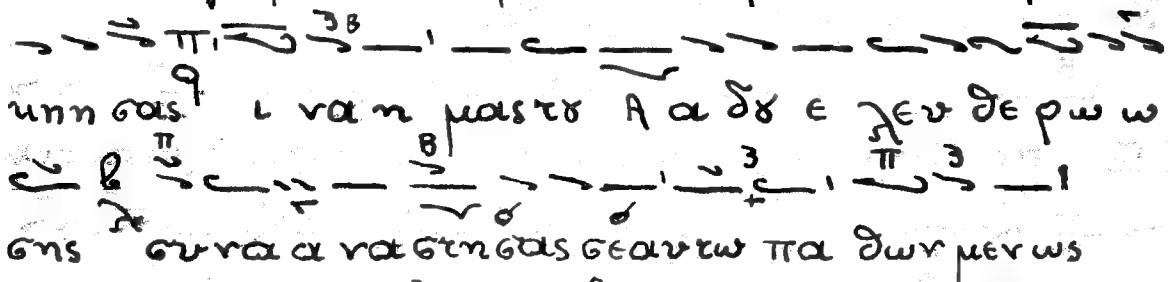 κηη σας ι να η μας τȣ Α α δȣ ε λευ θε ρω ω
σης συ να α να στη σας σε αυ τω πα θων μεν ως